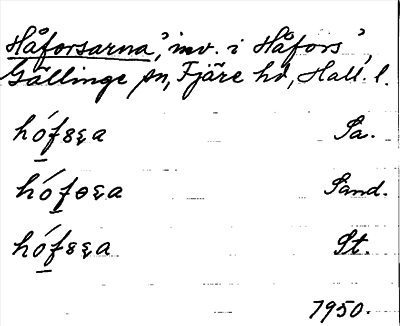 Håforsarna, 'inv. i Håfors',
Gällinge sn, Fjäre hd, Hall. l.
Sa.
Sand.
St.
1950.